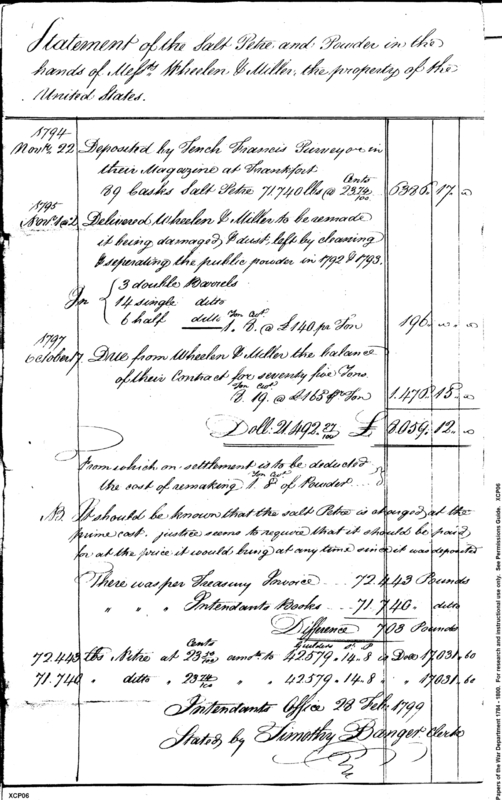 Statement of the Salt Petre and Powder in the
hands of Messrs. Wheelen & Miller, the property of the
United States.
1794
Novr. 22 Deposited by Tench Francis Purveyor in
their Magazine at Frankfort
89 Casks Salt Petre 71740 lbs @ 23 74/100 Cents 6386. 17. "
1795
Novr. Delivered Wheelen & Miller to be remade
it being damaged & dust left by cleaning
& seperating the public powder in 1792 & 1793.
In { 3 double Barrels
14 single ditto
6 half ditto Ton Cwt 1. 8. @ £140 pr Ton 196. " . "
1797
October 7 Due from Wheelen & Miller the balance
of their Contract for seventy five Tons.
Ton Cwt 8. 19. @ £165 pr Ton 1.476. 15. "
Doll: 21.492. 27/100 £ 8.059. 12. "
From which on settlement is to be deducted
the cost of remaking Ton Cwt 1. 8 of Powder
NB It should be known that the salt Petre is charged at the
prime cost. justice seems to require that it should be paid
for at the price it would bring at any time since it was deposited
There was per Treasury Invoice 72.443 Pounds
" " " Intendants Books 71.740. ditto
Difference 703 Pounds
72.443 lbs Nitre at 23 50/100 Cents amots. to 42579. 14. 8 is Dolls 17031.60
71.740 " ditto " 23 74/100 " " 42579. 14. 8 " " 17031.60
Intendants Office 28 Feb. 1799
Stated by Timothy Banger Clerk
XCP06
Papers of the War Department 1784 - 1800. For research and instructional use only. See Permissions Guide. XCP06